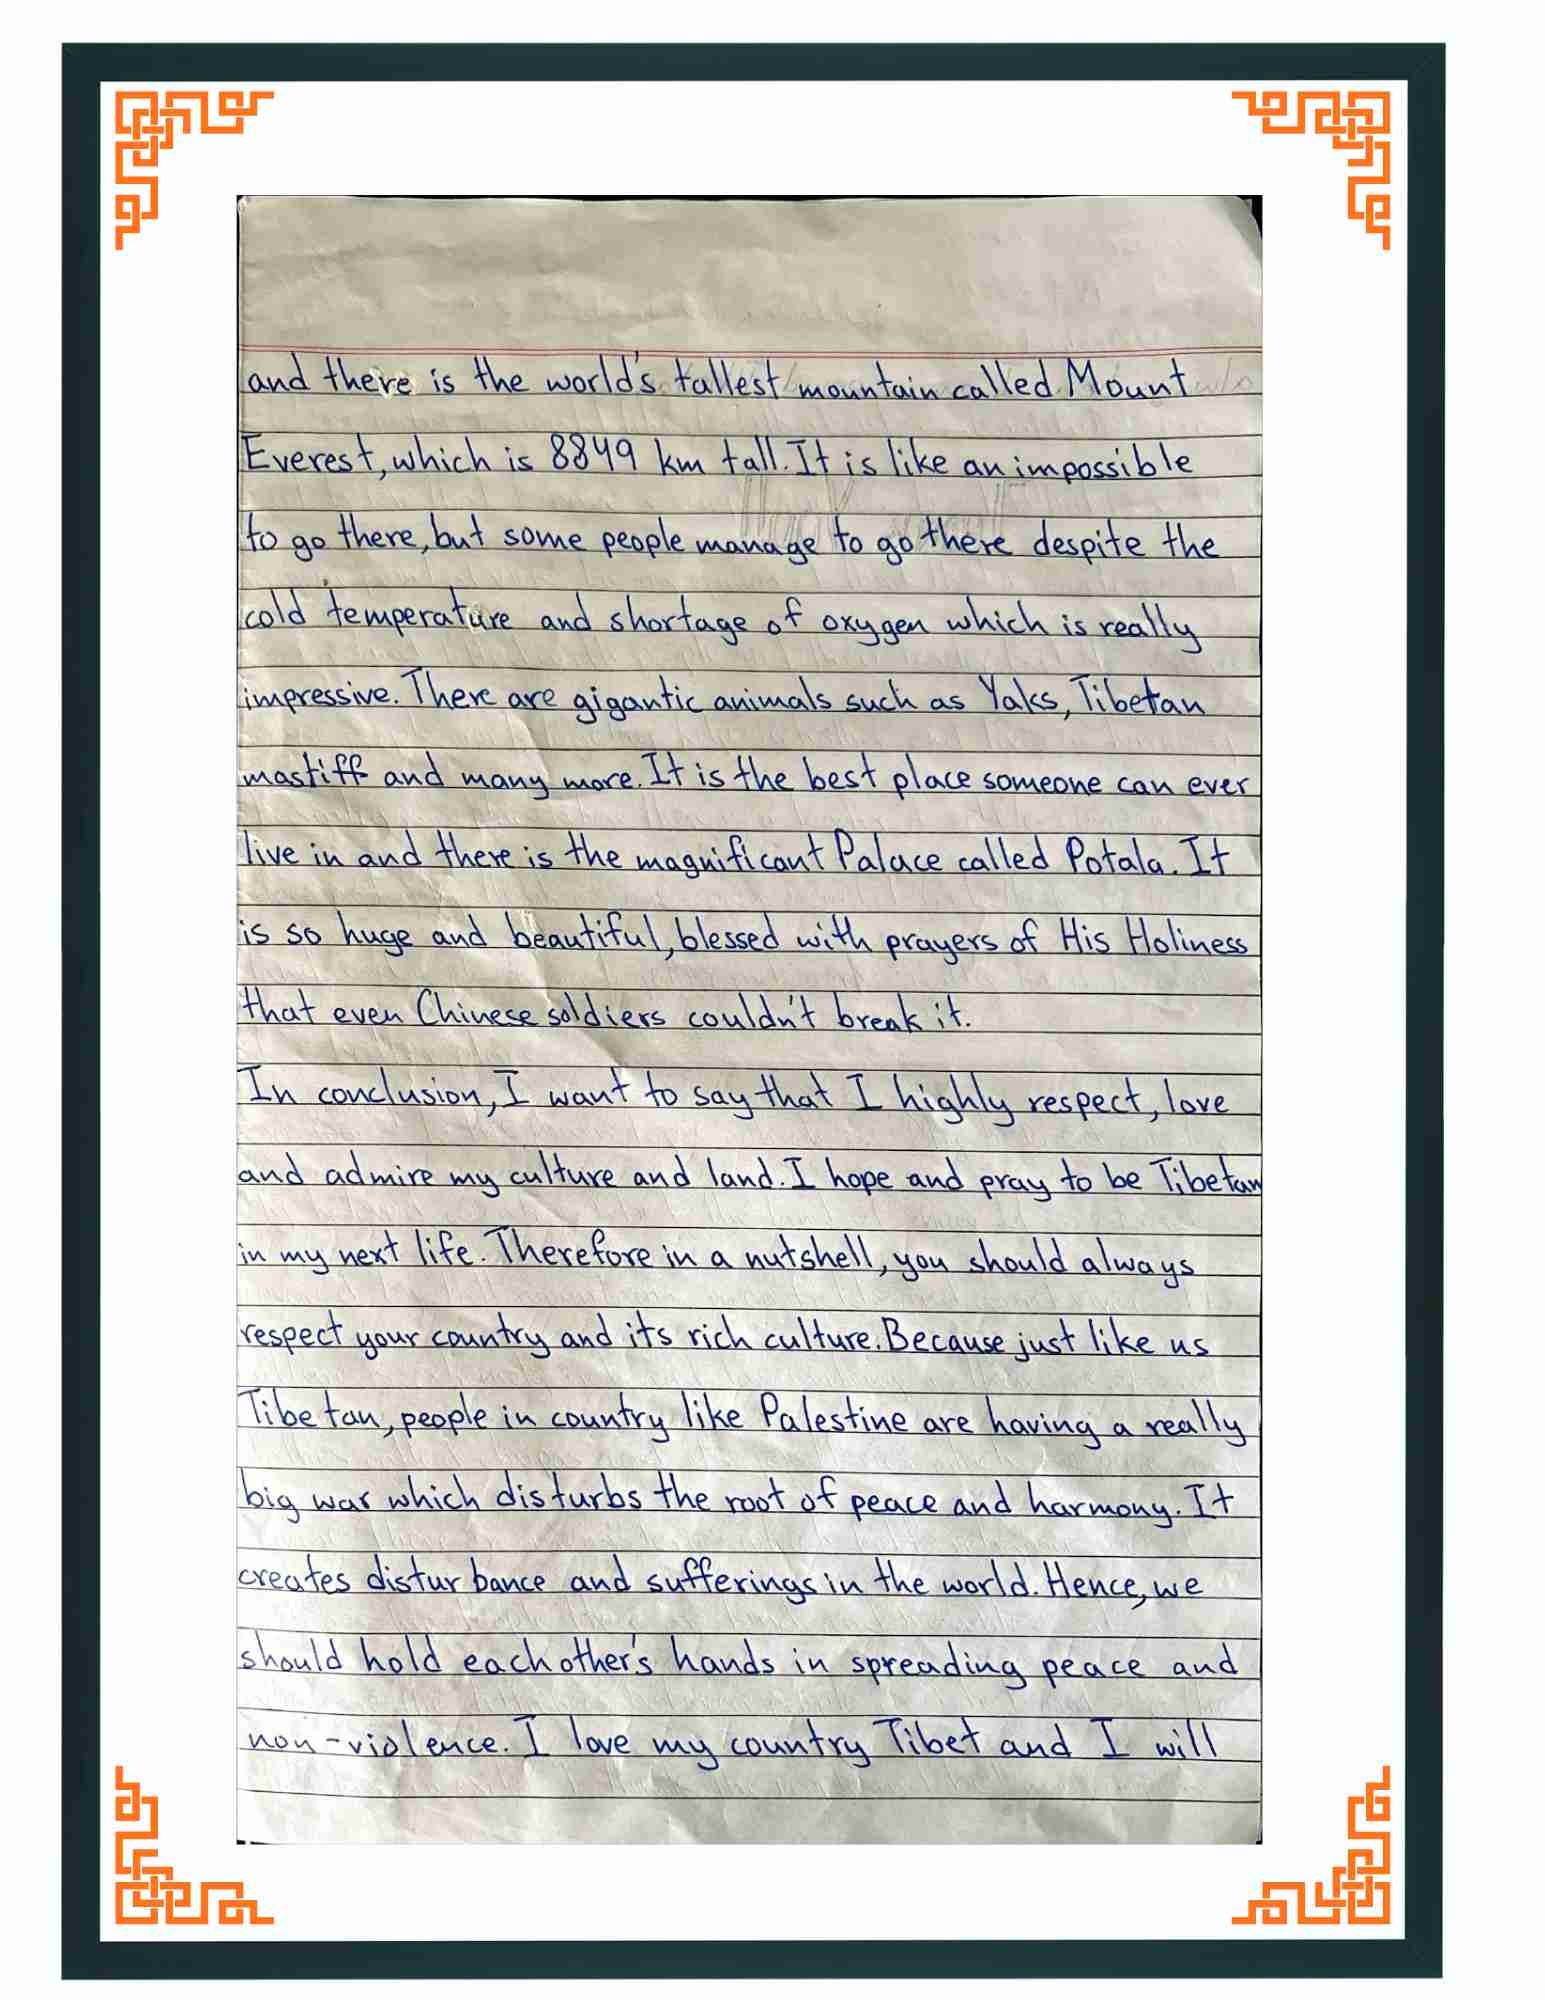 and there is the world's tallest mountain called Mount
Everest, which is 8849 km tall. It is like an impossible
to go there, but some people manage to go there despite the
cold temperature and shortage of oxygen which is really
impressive. There are gigantic animals such as Yaks, Tibetan
mastiff and many more. It is the best place someone can ever
live in and there is the magnificant Palace called Potala. It
is so huge and beautiful, blessed with prayers of His Holiness
that even Chinese soldiers couldn't break it.
In conclusion, I want to say that I highly respect, love
and admire my culture and land. I hope and pray to be Tibetan
in my next life. Therefore in a nutshell, you should always
respect your country and its rich culture. Because just like us
Tibetan, people in country like Palestine are having a really
big war which disturbs the root of peace and harmony. It
creates disturbance and sufferings in the world. Hence, we
should hold each other's hands in spreading peace and
non-violence. I love my country Tibet and I will